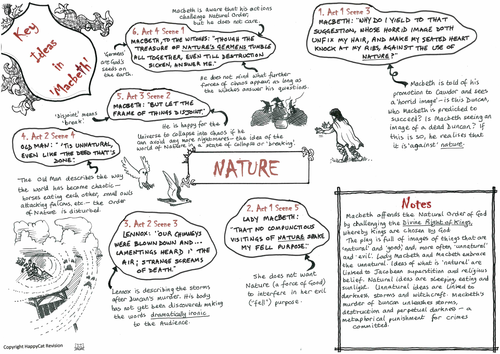 Key
Ideas
in
'Macbeth'
Macbeth is aware that his actions
challenge Natural Order,
but he does not care.
6. Act 4 Scene 1
MACBETH, TO THE WITCHES: "THOUGH THE
TREASURE OF NATURE'S GERMENS TUMBLE
ALL TOGETHER, EVEN TILL DESTRUCTION
SICKEN, ANSWER ME."
'Germens'
are God's
seeds on
the earth.
He does not mind what further
forces of chaos appear, as long as
the witches answer his questions.
1. Act 1 Scene 3
MACBETH: "WHY DO I YIELD TO THAT
SUGGESTION, WHOSE HORRID IMAGE DOTH
UNFIX MY HAIR, AND MAKE MY SEATED HEART
KNOCK AT MY RIBS, AGAINST THE USE OF
NATURE?"
Macbeth is told of his
promotion to Cawdor and sees
a 'horrid image' – is this Duncan,
who Macbeth is predicted to
succeed? Is Macbeth seeing an
image of a dead Duncan? If
this is so, he realises that
it is 'against' nature.
'disjoint' means
'break'.
5. Act 3 Scene 2
MACBETH: "BUT LET THE
FRAME OF THINGS DISJOINT."
He is happy for the
Universe to collapse into chaos if he
can avoid any more nightmares – the idea of the
world of Nature in a state of collapse or 'breaking'.
4. Act 2 Scene 4
OLD MAN: "'TIS UNNATURAL,
EVEN LIKE THE DEED THAT'S
DONE."
The Old Man describes the way
the world has become chaotic –
horses eating each other, small owls
attacking falcons, etc – the Order
of Nature is disturbed.
NATURE
3. Act 2 Scene 3
LENNOX: "OUR CHIMNEYS
WERE BLOWN DOWN AND...
LAMENTINGS HEARD I' THE
AIR; STRANGE SCREAMS
OF DEATH."
Lennox is describing the storms
after Duncan's murder. His body
has not yet been discovered making
his words dramatically ironic
to the Audience.
2. Act 1 Scene 5
LADY MACBETH:
"THAT NO COMPUNCTIOUS
VISITINGS OF NATURE SHAKE
MY FELL PURPOSE."
She does not want
Nature (a force of Good)
to interfere in her evil
('fell') purpose.
Notes
Macbeth offends the Natural Order of God
by challenging the Divine Right of Kings,
whereby Kings are chosen by God
The play is full of images of things that are
'natural' and 'good', and, more often, 'unnatural'
and 'evil'. Lady Macbeth and Macbeth embrace
the unnatural. Ideas of what is 'natural' are
linked to Jacobean superstition and religious
belief. Natural ideas are sleeping, eating and
sunlight. Unnatural ideas are linked to
darkness, storms and witchcraft. Macbeth's
murder of Duncan unleashes storms,
destruction and perpetual darkness – a
metaphorical punishment for crimes
committed.
Copyright HappyCat Revision